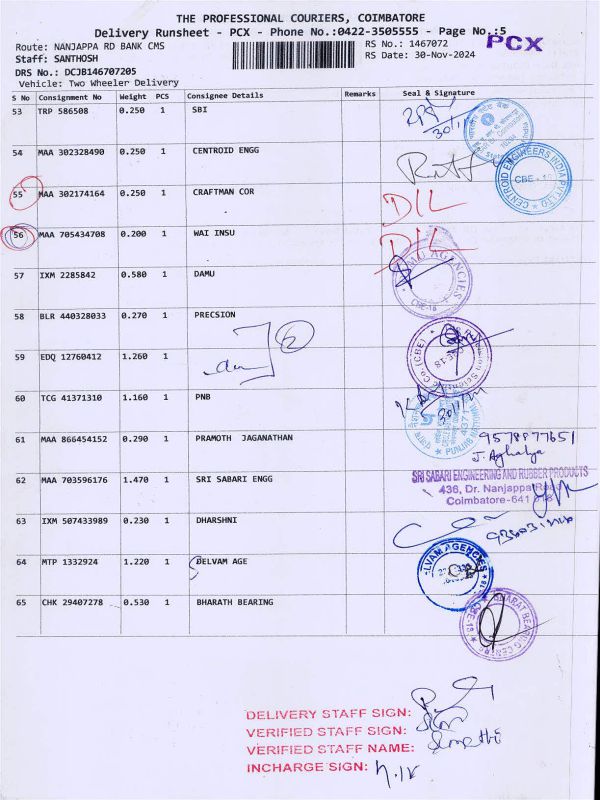 THE PROFESSIONAL COURIERS, COIMBATORE
Delivery Runsheet - PCX - Phone No.:0422-3505555 - Page No.:5
Route: NANJAPPA RD BANK CMS
RS No.: 1467072
PCX
Staff: SANTHOSH
RS Date: 30-Nov-2024
DRS No.: DCJB146707205
Vehicle: Two Wheeler Delivery
S No Consignment No Weight PCS Consignee Details Remarks Seal & Signature
53 TRP 586508 0.250 1 SBI
54 MAA 302328490 0.250 1 CENTROID ENGG
CENTROID ENGINEERS INDIA PVT LTD
CBE - 18
55 MAA 302174164 0.250 1 CRAFTMAN COR
DIL
56 MAA 705434708 0.200 1 WAI INSU
DIL
57 IXM 2285842 0.580 1 DAMU
AGENCIES
CBE-18
58 BLR 440328033 0.270 1 PRECSION
59 EDQ 12760412 1.260 1
60 TCG 41371310 1.160 1 PNB
61 MAA 866454152 0.290 1 PRAMOTH JAGANATHAN
9578877651
62 MAA 703596176 1.470 1 SRI SABARI ENGG
SRI SABARI ENGINEERING AND RUBBER PRODUCTS
436, Dr. Nanjappa Road
Coimbatore-641 018
63 IXM 507433989 0.230 1 DHARSHNI
64 MTP 1332924 1.220 1 DELVAM AGE
LVAM AGENCIES
65 CHK 29407278 0.530 1 BHARATH BEARING
BHARAT BEARING CENTRE
CBE-18
DELIVERY STAFF SIGN:
VERIFIED STAFF SIGN:
VERIFIED STAFF NAME:
INCHARGE SIGN: